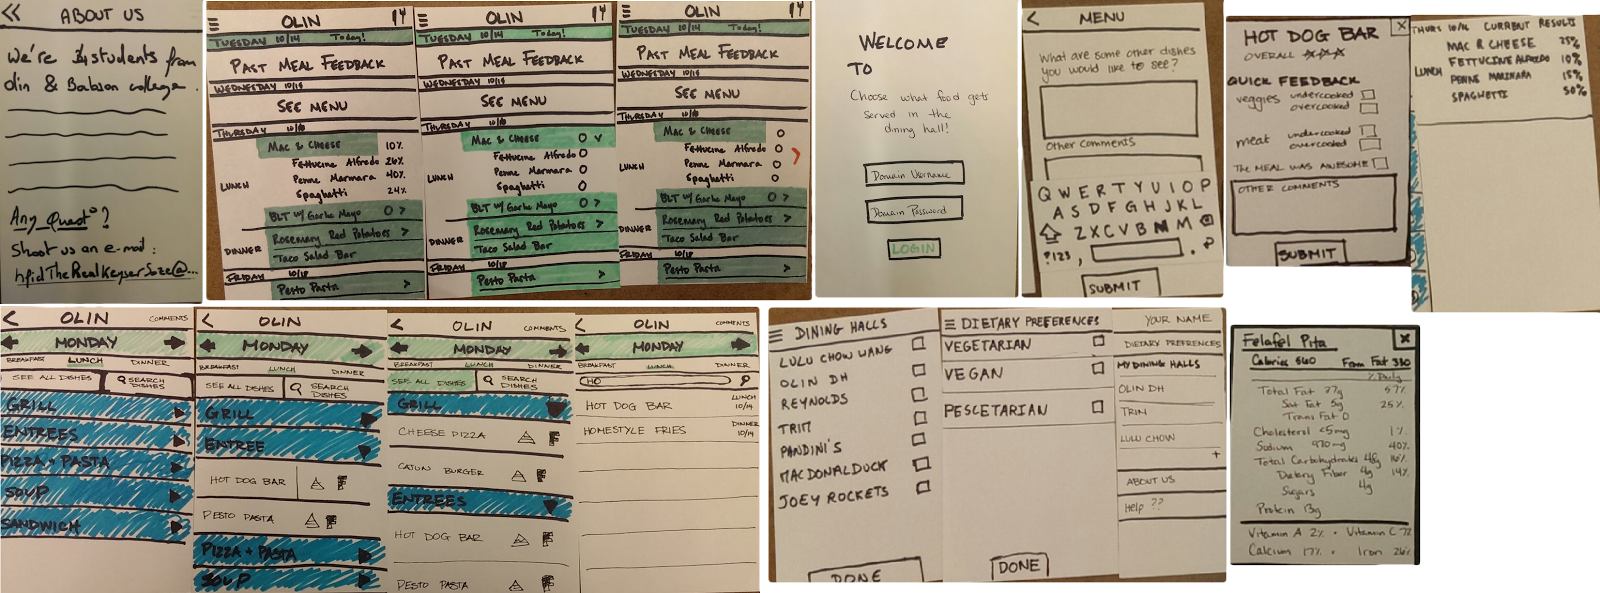 << ABOUT US
We're 34 students from
olin & Babson college.
Any Quest°?
Shoot us an e-mail:
hfidTheRealKeyserSoze@...
OLIN
TUESDAY 10/14 Today!
PAST MEAL FEEDBACK
WEDNESDAY 10/15
SEE MENU
THURSDAY 10/16
LUNCH
Mac & Cheese 10%
Fettucine Alfredo 26%
Penne Marmara 40%
Spaghetti 24%
BLT w/ Garlic Mayo O >
DINNER
Rosemary Red Potatoes >
Taco Salad Bar
FRIDAY 10/18
Pesto Pasta >
OLIN
TUESDAY 10/14 Today!
PAST MEAL FEEDBACK
WEDNESDAY 10/15
SEE MENU
THURSDAY 10/16
LUNCH
Mac & Cheese O ✓
Fettucine Alfredo O
Penne Marmara O
Spaghetti O
BLT w/ Garlic Mayo O >
DINNER
Rosemary Red Potatoes >
Taco Salad Bar
FRIDAY 10/18
Pesto Pasta >
OLIN
TUESDAY 10/14 Today!
PAST MEAL FEEDBACK
WEDNESDAY 10/15
SEE MENU
THURSDAY 10/16
LUNCH
Mac & Cheese O
Fettucine Alfredo O
Penne Marmara O
Spaghetti O
BLT w/ Garlic Mayo O >
DINNER
Rosemary Red Potatoes >
Taco Salad Bar
FRIDAY 10/18
Pesto Pasta >
WELCOME
TO
Choose what food gets
served in the
dining hall!
Domain Username
Domain Password
LOGIN
< MENU
What are some other dishes
you would like to see?
Other Comments
Q W E R T Y U I O P
A S D F G H J K L
Z X C V B N M
?123 , .
SUBMIT
HOT DOG BAR X
OVERALL
QUICK FEEDBACK
veggies undercooked
overcooked
meat undercooked
overcooked
THE MEAL WAS AWESOME
OTHER COMMENTS
SUBMIT
THURS 10/16 CURRENT RESULTS
LUNCH
MAC & CHEESE 25%
FETTUCINE ALFREDO 10%
PENNE MARINARA 15%
SPAGHETTI 50%
< OLIN COMMENTS
MONDAY
BREAKFAST LUNCH DINNER
SEE ALL DISHES SEARCH DISHES
GRILL
ENTREES
PIZZA + PASTA
SOUP
SANDWICH
< OLIN
MONDAY
BREAKFAST LUNCH DINNER
SEE ALL DISHES SEARCH DISHES
GRILL
ENTREE
HOT DOG BAR
PESTO PASTA
PIZZA + PASTA
SOUP
< OLIN COMMENTS
MONDAY
BREAKFAST LUNCH DINNER
SEE ALL DISHES SEARCH DISHES
GRILL
CHEESE PIZZA
CAJUN BURGER
ENTREES
HOT DOG BAR
PESTO PASTA
< OLIN COMMENTS
MONDAY
BREAKFAST LUNCH DINNER
HO
HOT DOG BAR LUNCH 10/14
HOMESTYLE FRIES DINNER 10/14
DINING HALLS
LULU CHOW WANG
OLIN DH
REYNOLDS
TRIM
PANDINI'S
MACDONALDUCK
JOEY ROCKETS
DONE
DIETARY PREFERENCES
VEGETARIAN
VEGAN
PESCETARIAN
DONE
YOUR NAME
DIETARY PREFERENCES
MY DINING HALLS
OLIN DH
TRIM
LULU CHOW
+
ABOUT US
Help ??
Felafel Pita X
Calories 560 From Fat 330
% Daily
Total Fat 37g 57%
Sat Fat 5g 25%
Trans Fat 0
Cholesterol <5mg 1%
Sodium 970mg 40%
Total Carbohydrates 48g 16%
Dietary Fiber 4g 14%
Sugars 4g
Protein 13g
Vitamin A 2% • Vitamin C 7%
Calcium 17% • Iron 26%